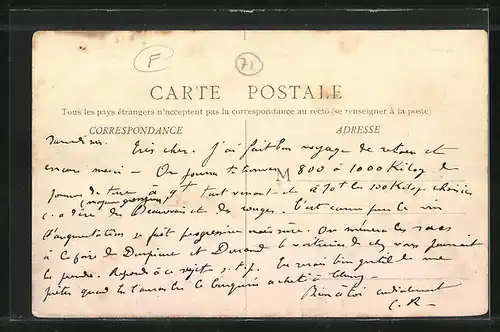 F
71
CARTE POSTALE
Tous les pays étrangers n'acceptent pas la correspondance au recto (se renseigner à la poste)
CORRESPONDANCE
ADRESSE
Samedi soir. Très cher. J'ai fait bon voyage de retour et
encore merci – On pourra trouver 800 à 1000 Kilog de
M
pommes de terre à 9f tout venant et à 10f les 100 Kilog choisies
(moyenne grosseur)
c. à dire des Beauvais et des rouges. C'est comme pour le vin
l'augmentation se fait progressive mais sûre. On mènera les sacs
à la foire de et Durand le de chez vous pourrait
les prendre. Réponds à ce sujet s.t.p. Tu serais bien gentil de me
prêter quand tu l'auras lu le bouquin acheté à Cluny –
Bien à toi cordialement
C. R –